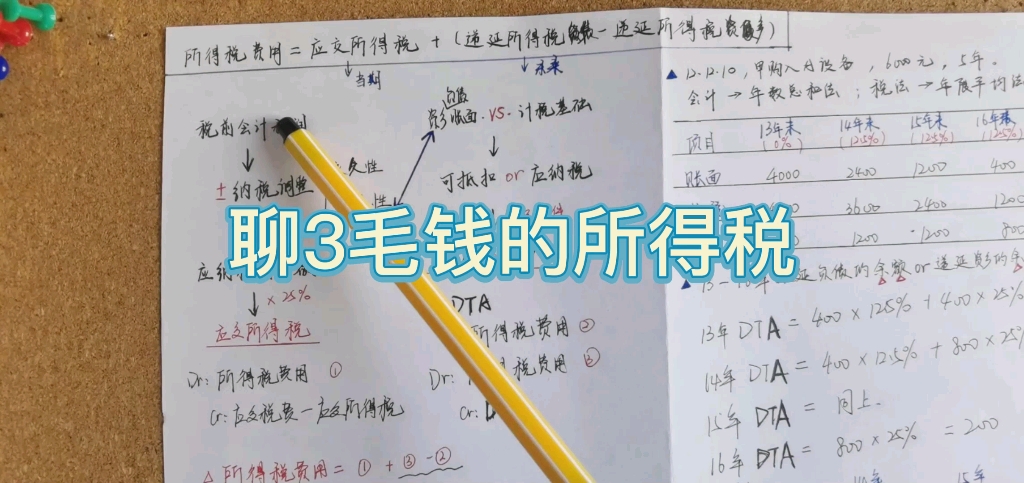 所得税费用 = 应交所得税 + (递延所得税 - 递延所得税
↓当期
↓未来
税前会计
↓
±纳税调整
久性
性
↓ × 25%
应交所得税
Dr: 所得税费用 ①
Cr: 应交税费—应交所得税
△ 所得税费用 = ① + ③ - ②
负债
账面 VS 计税基础
↓
可抵扣 or 应纳税
DTA
所得税费用 ②
Dr:
税费用 ③
Cr:
聊3毛钱的所得税
▲ 12.12.10, 甲购入A设备, 6000元, 5年.
会计 → 年数总和法; 税法 → 年限平均法
项目 13年末 (0%) 14年末 (12.5%) 15年末 (12.5%) 16年末 (12.5%)
账面 4000 2400 1200 400
3600 2400 1200
1200 1200 800
▲ 13-16年
的余额 or 递延
的余
13年 DTA = 400 × 12.5% + 400 × 25%
14年 DTA = 400 × 12.5% + 800 × 25%
15年 DTA = 同上.
16年 DTA = 800 × 25% = 200
14年 15年